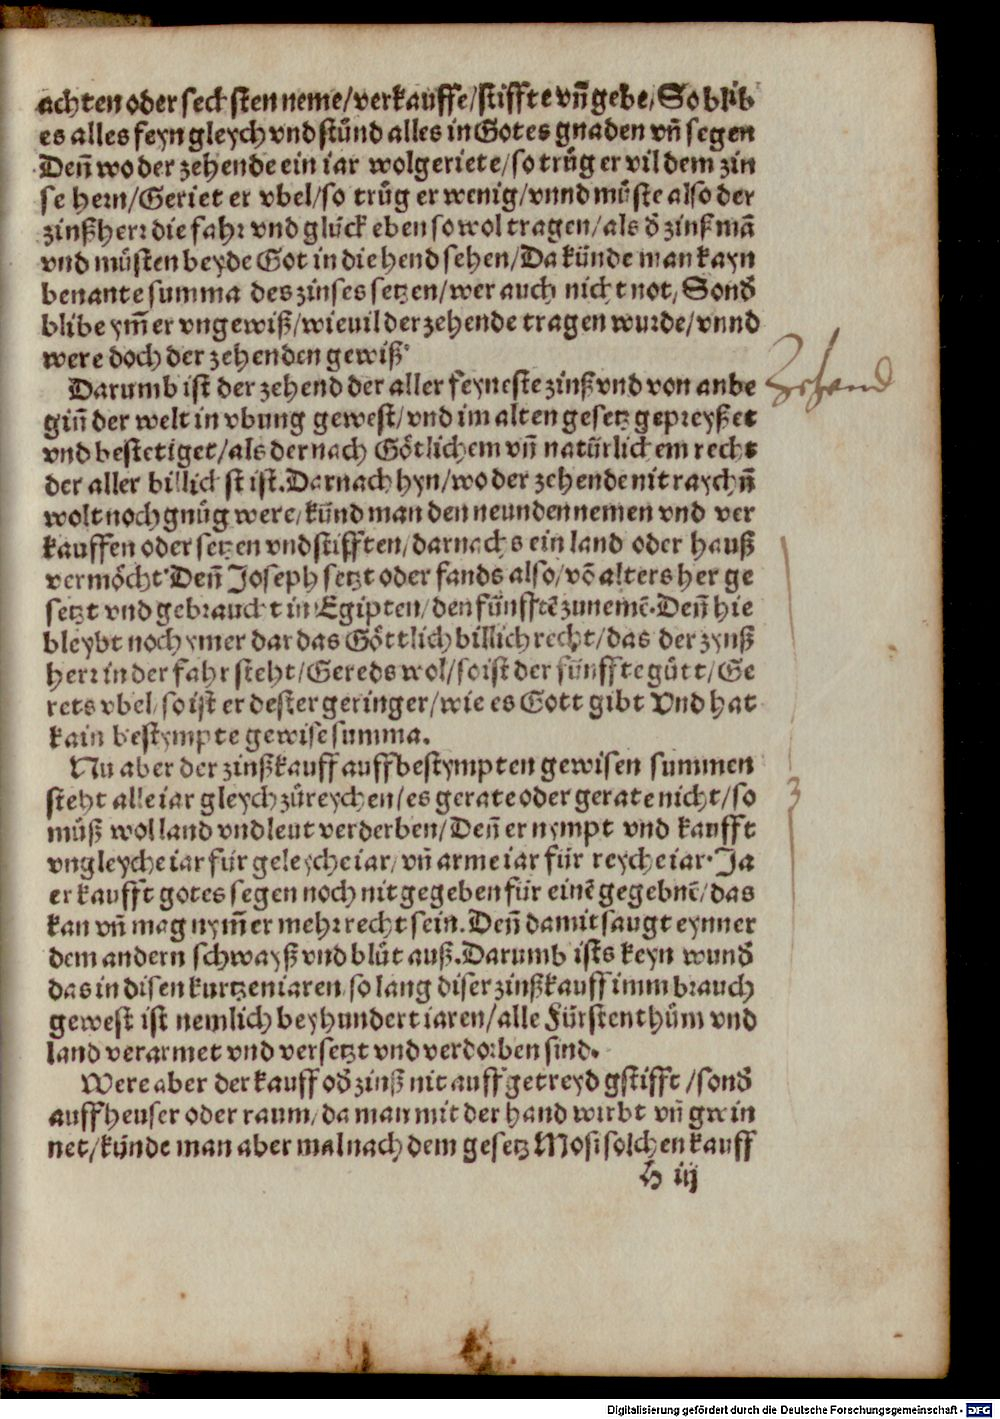 achten oder sechsten neme/verkauffe/stiffte vñ gebe/So blib
es alles feyn gleych vnd stůnd alles in Gotes gnaden vñ segen
Deñ wo der zehende ein iar wolgeriete/so trůg er vil dem zin
se hern/Geriet er vbel/so trůg er wenig/vnnd můste also der
zinßherr die fahr vnd glück eben so wol tragen/als ď zinßmā
vnd můsten beyde Got in die hend sehen/Da künde man kayn
benante summa des zinses setzen/wer auch nicht not/Sonď
blibe ym̄er vngewiß/wieuil der zehende tragen wurde/vnnd
were doch der zehenden gewiß
Darumb ist der zehend der aller feyneste zinß vnd von anbe
giñ der welt in vbung gewest/vnd im alten gesetz gepreyßet
vnd bestetiget/als der nach Götlichem vñ natürlichem recht
der aller billichst ist. Darnach hyn/wo der zehende nit raychñ
wolt noch gnůg were/künd man den neunden nemen vnd ver
kauffen oder setzen vnd stifften/darnachs ein land oder hauß
vermöcht Deñ Joseph setzt oder fands also/vō alters her ge
setzt vnd gebraucht in Egipten/den fünfftē zunemē. Deñ hie
bleybt noch ymer dar das Göttlich billich recht/das der zynß
herr in der fahr steht/Gereds wol/so ist der fünffte gůtt/Ge
rets vbel/so ist er dester geringer/wie es Gott gibt Vnd hat
kain bestympte gewise summa.
Nu aber der zinßkauff auff bestympten gewisen summen
steht alle iar gleych zůreychen/es gerate oder gerate nicht/so
můß wol land vnd leut verderben/Deñ er nympt vnd kaufft
vngleyche iar für geleyche iar/vñ arme iar für reyche iar. Ja
er kaufft gotes segen noch nit gegeben für einē gegebnē/das
kan vñ mag nym̄er mehr recht sein. Deñ damit saugt eynner
dem andern schwayß vnd blůt auß. Darumb ists keyn wunď
das in disen kurtzen iaren so lang diser zinßkauff imm brauch
gewest ist nemlich bey hundert iaren/alle Fürstenthům vnd
land verarmet vnd versetzt vnd verdorben sind.
Were aber der kauff oď zinß nit auff getreyd gstifft/sonď
auff heuser oder raum/da man mit der hand wirbt vñ gwin
net/künde man aber mal nach dem gesetz Mosi solchen kauff
H iij
Zehend
3
Digitalisierung gefördert durch die Deutsche Forschungsgemeinschaft - DFG